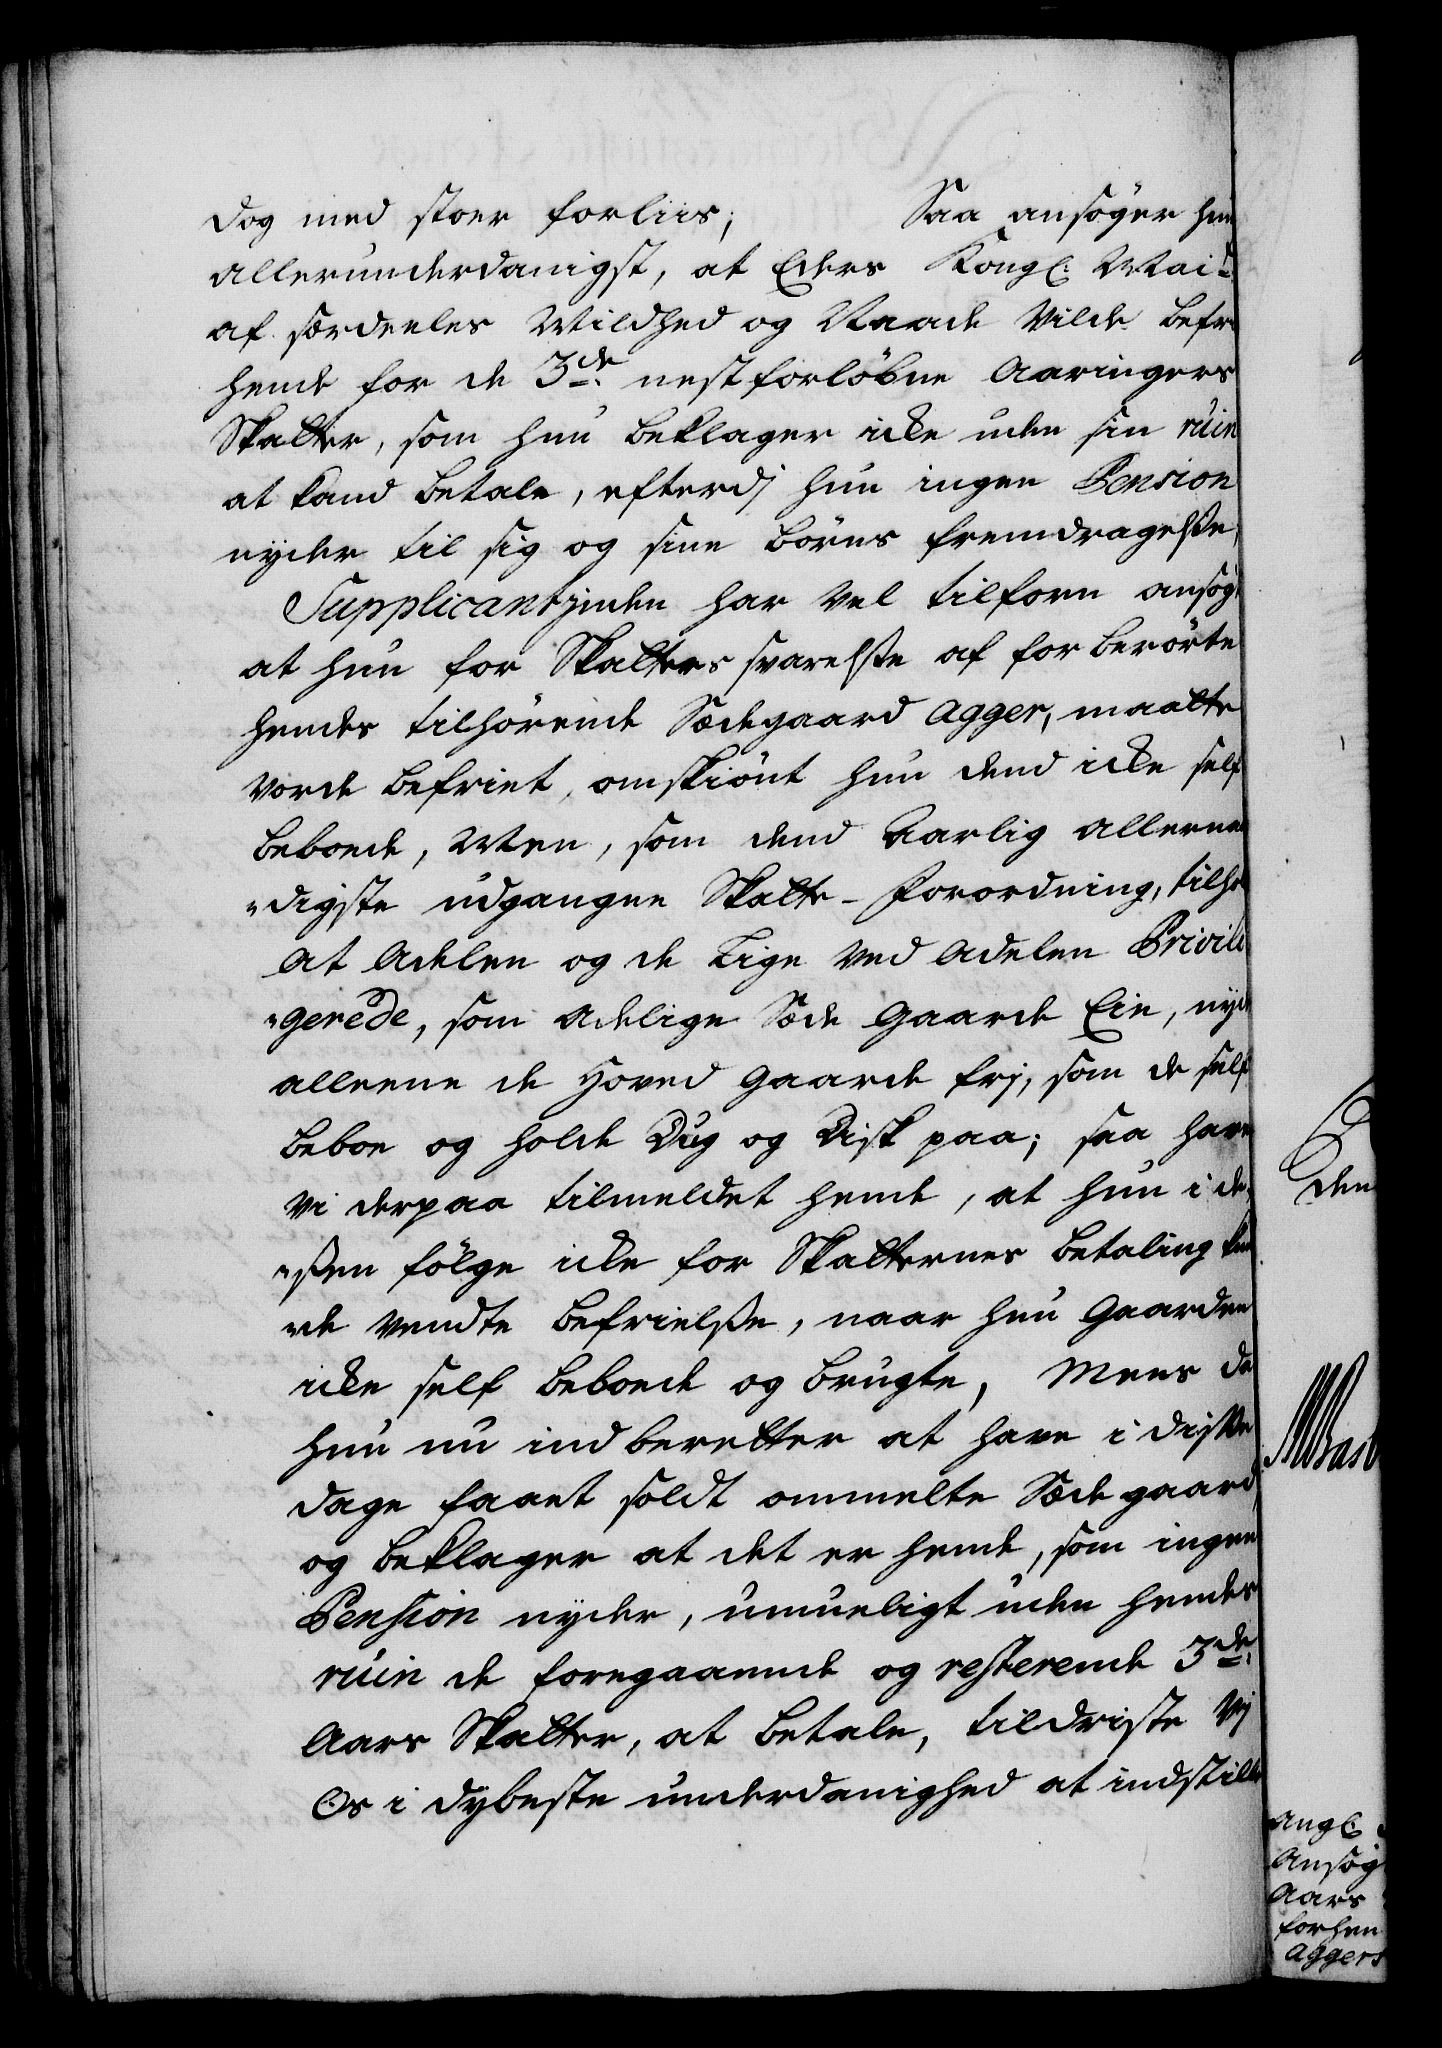 dog med stoer forliis; Saa ansøger hun
allerunderdanigst, at Eders Kongl: Mait:
af særdeeles Mildhed og Naade Vilde befri
hende for de 3de nestforløbne Aaringers
Skatter, som hun beklager icke uden sin ruin
at kand betale, efterdj hun ingen Pension
nyder til sig og sine børns fremdragelsse,
Supplicantjnden har vel tilforn ansøgt
at hun for Skatters svarelsse af forberørte
hendes tilhørende Sædegaard Agger, maatte
vorde befriet, omskiønt hun dend icke self
beboede, Men, som dend Aarlig allernaa
"digste udgangne Skatte-Forordning, tilho
At Adelen og de Lige ved Adelen Privile
"gerede, som Adelige Sæde Gaarde Eie, nyde
alleene de Hoved Gaarde frj, som de self
beboe og holde Dug og Disk paa; saa have
vi derpaa tilmeldet hende, at hun i de
"ssen følge icke for Skatternes betaling kun
"de vendte befrielsse, naar hun Gaarden
icke self beboede og brugte, Mens da
hun nu indberetter at have i disse
dage faaet soldt ommelte Sædegaard,
og beklager at det er hende, som ingen
Pension nyder, umueligt uden hendes
ruin de foregaaende og resterende 3de
Aars Skatter, at betale, tildriste Vj
Os i dybeste underdanighed at indstille
den
Ansøg
Aars
forhen
Aggers